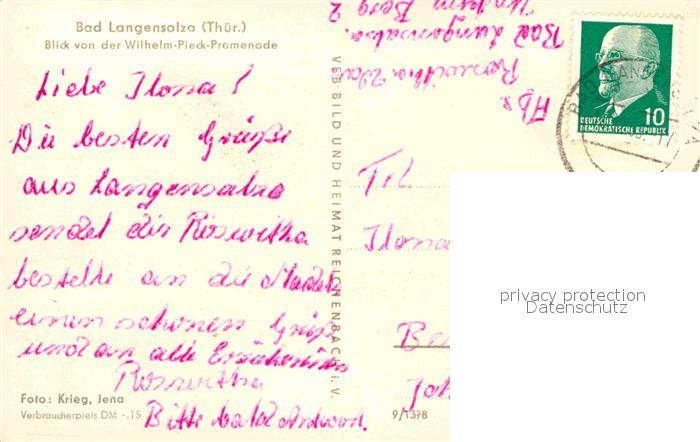 Bad Langensalza (Thür.)
Blick von der Wilhelm-Pieck-Promenade
Liebe Ilona!
Die besten Grüße
aus Langensalza
sendet dir Roswitha
bestelle an die Mädels
einen schönen Grüße
und an alle Erzieherinnen
Roswitha
Bitte bald Antwort.
Foto: Krieg, Jena
Verbraucherpreis DM -.15
9/1398
VEB BILD UND HEIMAT REICHENBACH I. V.
Abs.
Roswitha
Bad Langensalza
Unterm Berg 2
10
DEUTSCHE
DEMOKRATISCHE REPUBLIK
Frl.
Ilona
privacy protection
Datenschutz